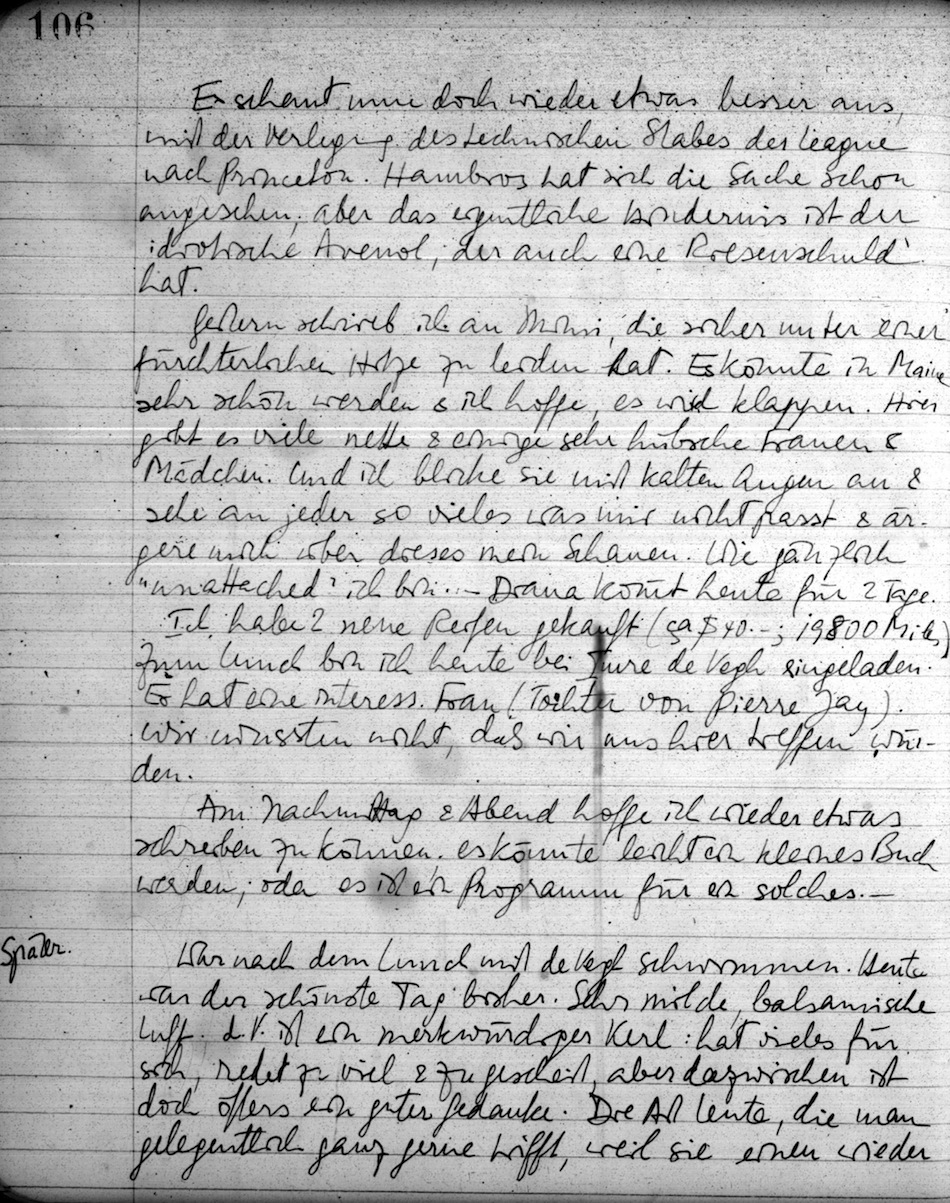 106
Es schaut nun doch wieder etwas besser aus,
mit der Verlegung des technischen Stabes der League
nach Princeton. Hambros hat sich die Sache schon
angesehen; aber das eigentliche Hindernis ist der
idiotische Avenol, der auch eine Riesenschuld
hat.
Gestern schrieb ich an Mimi, die sicher unter einer
fürchterlichen Hitze zu leiden hat. Es könnte in Maine
sehr schön werden & ich hoffe, es wird klappen. Hier
gibt es viele nette & einige sehr hübsche Frauen &
Mädchen. Und ich blicke sie mit kalten Augen an &
sehe an jeder so vieles was mir nicht passt & är-
gere mich über dieses mein Schauen. Wie gänzlich
"unattached" ich bin. – Diana kom̄t heute für 2 Tage.
Ich habe 2 neue Reifen gekauft (ça $40.–; 19800 Mile)
Zum Lunch bin ich heute bei Imre de Vegh eingeladen.
Er hat eine interess. Frau (Tochter von Pierre Jay).
Wir wussten nicht, daß wir uns hier treffen wür-
den.
Am Nachmittag & Abend hoffe ich wieder etwas
schreiben zu können. es könnte leicht ein kleines Buch
werden, oder es ist ein Programm für ein solches. –
Später.
War nach dem Lunch mit de Vegh schwimmen. Heute
war der schönste Tag bisher. Sehr milde, balsamische
Luft. d. V. ist ein merkwürdiger Kerl: hat vieles für
sich, redet zu viel & zu gescheit, aber dazwischen ist
doch öfters ein guter Gedanke. Die Art Leute, die man
gelegentlich ganz gerne trifft, weil sie einen wieder